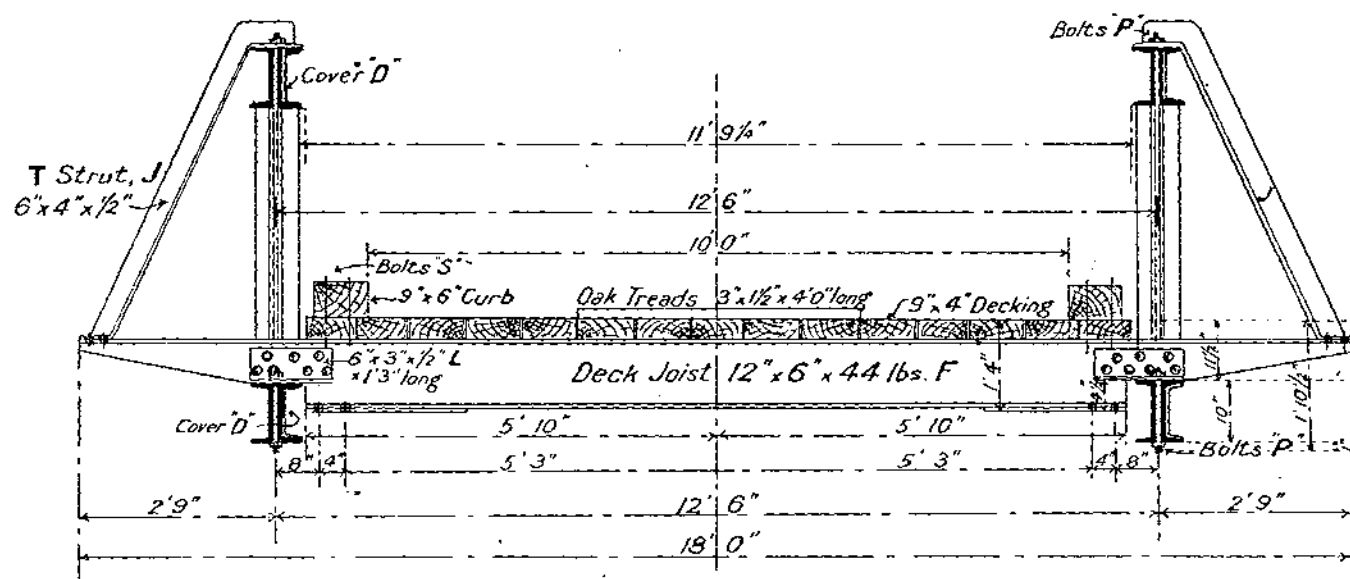 Bolts "P"
Cover "D"
11' 9¼"
T Strut, J
6" x 4" x ½"
12' 6"
10' 0"
Bolts "S"
9" x 6" Curb
Oak Treads 3" x 1½" x 4' 0" long
9" x 4" Decking
6" x 3" x ½" L
x 1' 3" long
Deck Joist 12" x 6" x 44 lbs. F
1' 4"
4¼"
11½"
10"
1' 10½"
Cover "D"
5' 10"
5' 10"
Bolts "P"
8"
4"
5' 3"
5' 3"
4"
8"
2' 9"
12' 6"
2' 9"
18' 0"